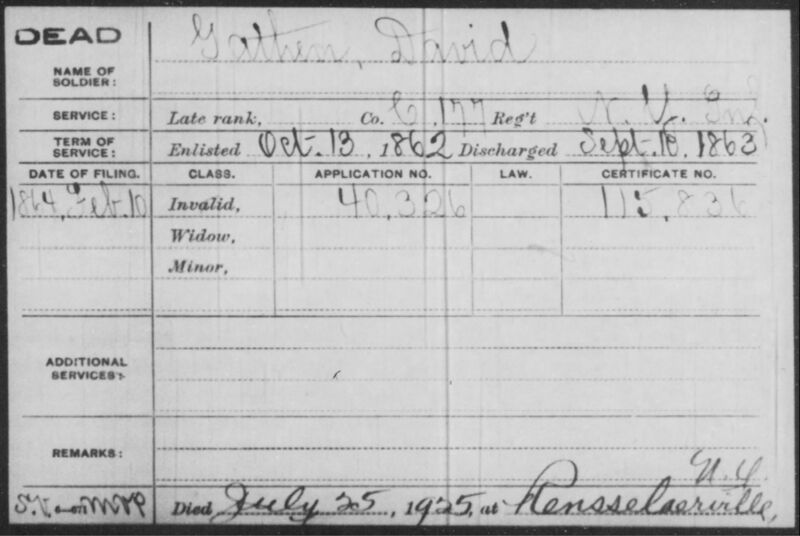 DEAD
NAME OF SOLDIER: Gathen, David
SERVICE: Late rank, Co. C, 177 Reg't N. Y. Inf.
TERM OF SERVICE: Enlisted Oct. 13, 1862 Discharged Sept. 10, 1863
DATE OF FILING. CLASS. APPLICATION NO. LAW. CERTIFICATE NO.
1864, Feb. 10 Invalid, 40,326 115,836
Widow,
Minor,
ADDITIONAL SERVICES:
REMARKS:
N.Y
Died July 25, 1925, at Rensselaerville,